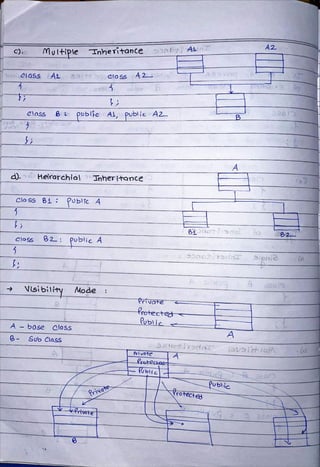 c). Multiple Inheritance
A1
A2
class A1
class A2
{
{
};
};
class B : public A1, public A2
B
{
};
d). Heirarchial Inheritance
A
class B1 : public A
{
};
B1
B2
class B2 : public A
{
};
→ Visibility Mode :
Private
Protected
Public
A
A - base class
B - Sub Class
Private
A
Protected
Public
Private
Protected
Public
Private
B